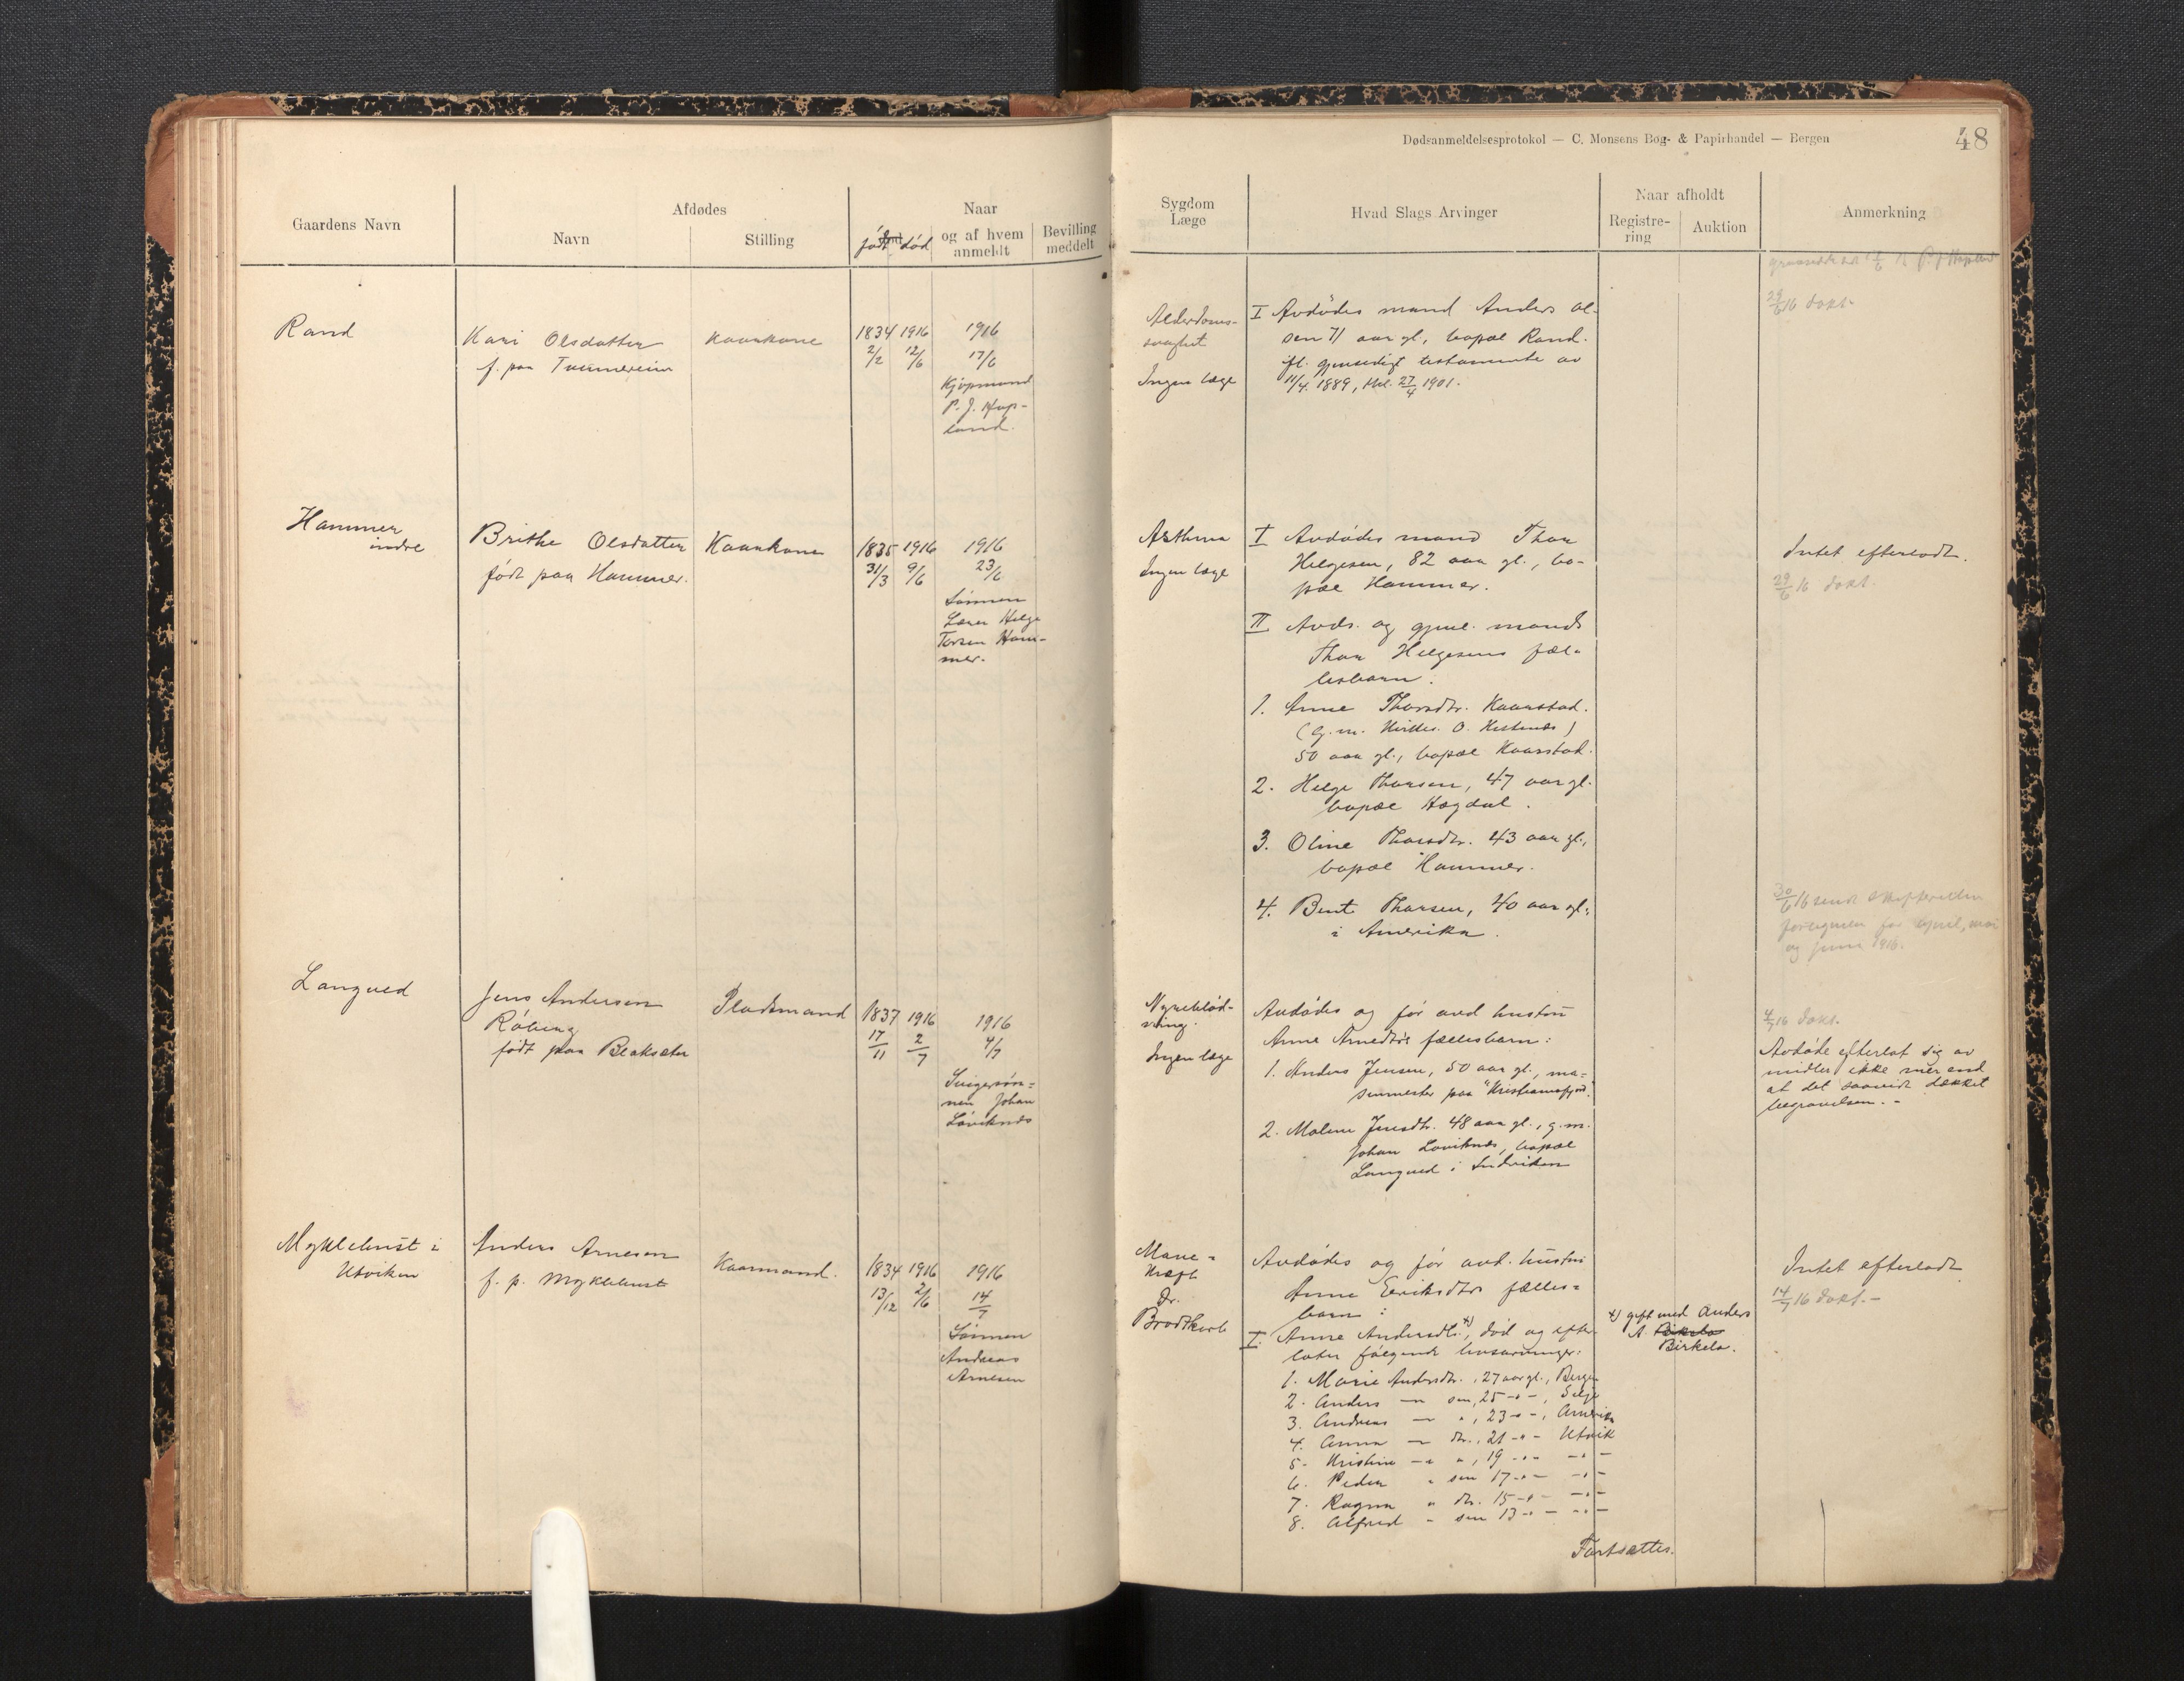 Dødsanmeldelsesprotokol — C. Monsens Bog- & Papirhandel — Bergen
48
Gaardens Navn
Afdødes
Navn
Stilling
født død
Naar
og af hvem
anmeldt
Bevilling
meddelt
Sygdom
Læge
Hvad Slags Arvinger
Naar afholdt
Registre-
ring
Auktion
Anmerkning
Rand
Kari Olsdatter
f. paa Tvinnereim
Kaarkone
1834 1916 1916
2/2 12/6 17/6
Kjøpmand
P. J. Hop-
land.
Alderdoms-
svakhet
Ingen læge
I Avdødes mand Anders Ol-
sen 71 aar gl., bopæl Rand.
ifl. gjensidigt testamente av
11/4 1889, thl. 27/4 1901.
29/6 16 dokt.
Hammer
indre
Brithe Olsdatter
født paa Hammer.
Kaarkone
1835 1916 1916
31/3 9/6 23/6
Sønnen
Lærer Helge
Torsen Ham-
mer.
Asthma
Ingen læge
I Avdødes mand Thor
Helgesen, 82 aar gl., bo-
pæl Hammer.
II Avds. og gjenl. mands
Thor Helgesens fæl-
lesbarn.
1. Anne Thorsdtr. Kaarstad.
50 aar gl., bopæl Kaarstad.
2. Helge Thorsen, 47 aar gl.
bopæl Hogdal.
3. Oline Thorsdtr. 43 aar gl.,
bopæl Hammer.
4. Bent Thorsen, 40 aar gl.,
i Amerika.
Intet efterladt.
29/6 16 dokt.
30/6 16 sendt skifteretten
fortegnelse for april, mai
og juni 1916.
Langved
Jens Andersen
født paa Bleksæter
Pladsmand
1837 1916 1916
17/11 2/7 4/7
Svigersøn-
nen Johan
Løviknes
Nyreblød-
ning.
Ingen læge
Avdødes og før avd. hustru
Anne Arnedtrs fællesbarn:
1. Anders Jensen, 50 aar gl., ma-
skinmester paa "Kristianiafjord".
2. Malene Jensdtr. 48 aar gl., g. m.
Johan Løviknes, bopæl
Langved i Indviken
4/7 16 dokt.
Avdøde efterlot sig av
midler ikke mer end
at det saavidt dækket
begravelsen. -
Myklebust i
Utviken
Anders Arnesen
f. p. Myklebust
Kaarmand.
1834 1916 1916
13/12 2/6 14/7
Sønnen
Andreas
Arnesen
Mave-
kræft
Dr.
Brodtkorb
Avdødes og før avd. hustru
Anne Eriksdtrs fælles-
barn:
I. Anne Andersdtr. x), død og efter-
later følgende livsarvinger:
1. Marie Andersdtr., 27 aar gl., Bergen
2. Anders — sen, 25 -"-, Selje
3. Andreas — ", 23 -"-, Amerika
4. Anna — dtr., 21 -"- Utvik
5. Kristine -" ", 19 -"- -"-
6. Peder " sen 17 -"- -"-
7. Ragna " dtr. 15 -"- -"-
8. Alfred " sen 13 -"- -"-
x) gift med Anders
A. Birkelo
Birkelo.
Intet efterladt
14/7 16 dokt. -
Fortsættes.